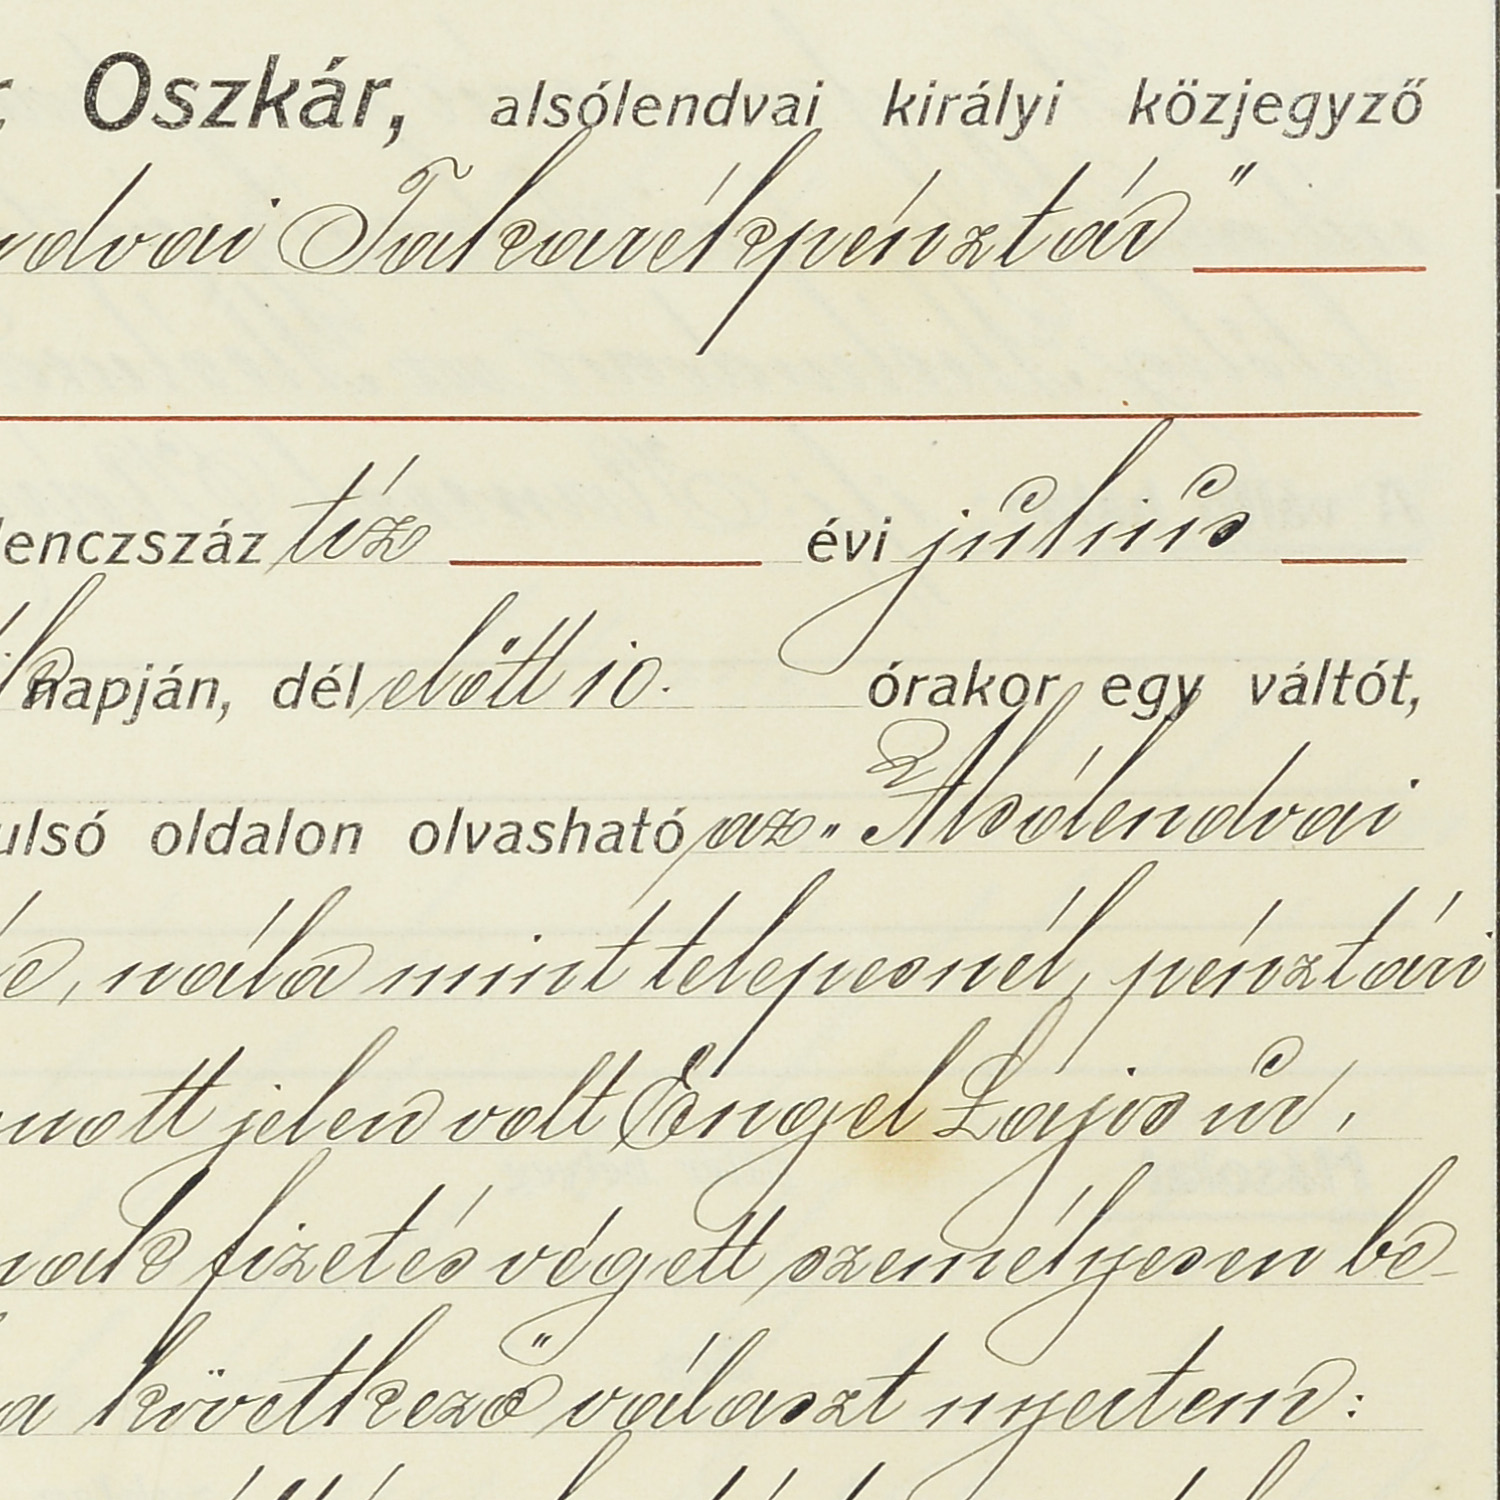 Oszkár, alsólendvai királyi közjegyző
ndvai Takarékpénztár"
lenczszáz tíz évi július
napján, dél előtt 10. órakor egy váltót,
ulsó oldalon olvasható az „Alsólendvai
e, nála mint telepesnél, pénztári
nott jelen volt Engel Lajos úr,
nak fizetés végett személyesen be-
a következő választ nyertem: